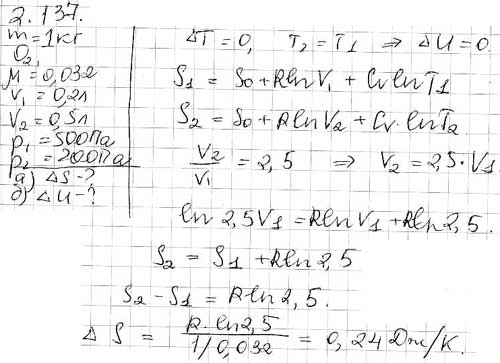 2.137.
m = 1кг
O₂
μ = 0,032
V₁ = 0,2л
V₂ = 0,5л
p₁ = 500Па
p₂ = 200Па
а) ΔS - ?
б) ΔU - ?
ΔT = 0, T₂ = T₁ ⇒ ΔU = 0.
S₁ = S₀ + RlnV₁ + Cv lnT₁
S₂ = S₀ + RlnV₂ + Cv · lnT₂
V₂/V₁ = 2,5 ⇒ V₂ = 2,5 · V₁
ln 2,5V₁ = RlnV₁ + Rln 2,5.
S₂ = S₁ + Rln 2,5
S₂ - S₁ = Rln 2,5.
ΔS = R · ln 2,5 / 1/0,032 = 0,24 Дж/К.